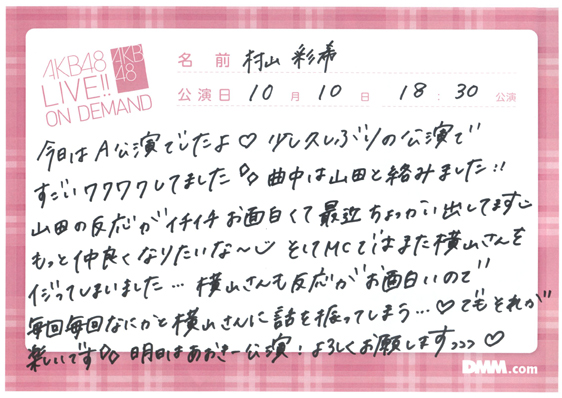 AKB48
LIVE!!
ON DEMAND
AKB
48
名前 村山 彩希
公演日 10月10日 18:30公演
今日はA公演でしたよ♡ 少し久しぶりの公演で
すごいワクワクしてました 曲中は山田と絡みました!!
山田の反応がイチイチお面白くて最近ちょっかい出してます
もっと仲良くなりたいな〜 そしてMCではまた横山さんを
イジってしまいました… 横山さんも反応がお面白いので
毎回毎回なにかと横山さんに話を振ってしまう…♡でもそれが
楽しいです 明日はあおきー公演！よろしくお願しますっっっ♡
DMM.com